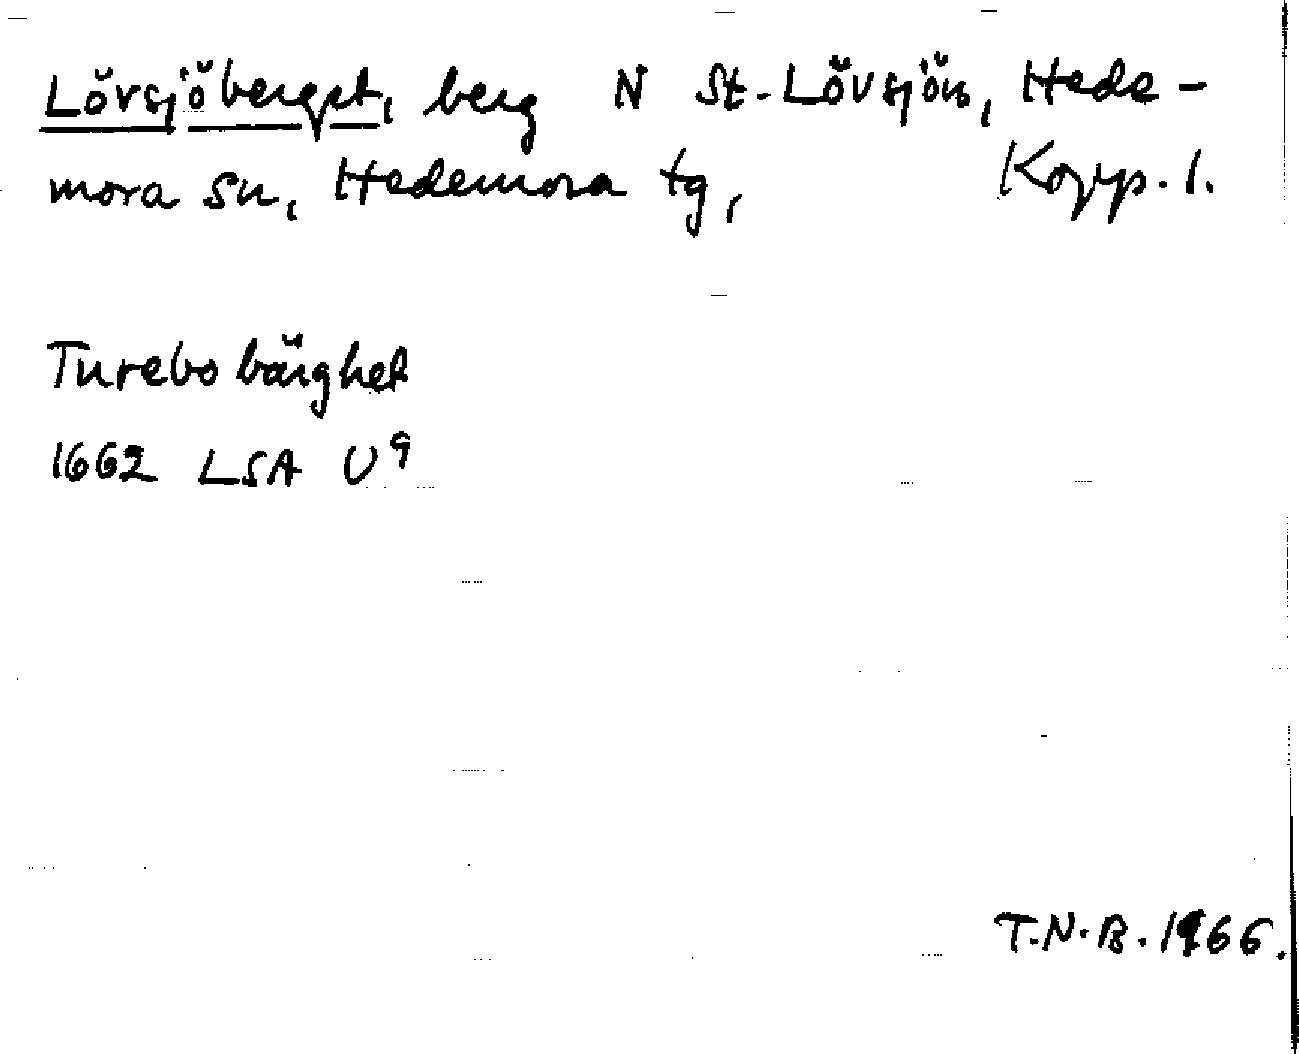 Lövsjöberget, berg N St. Lövsjön, Hede-
mora sn, Hedemora tg, Kopp. l.
Turebo bärghet
1662 LSA U9
T.N.B. 1966.